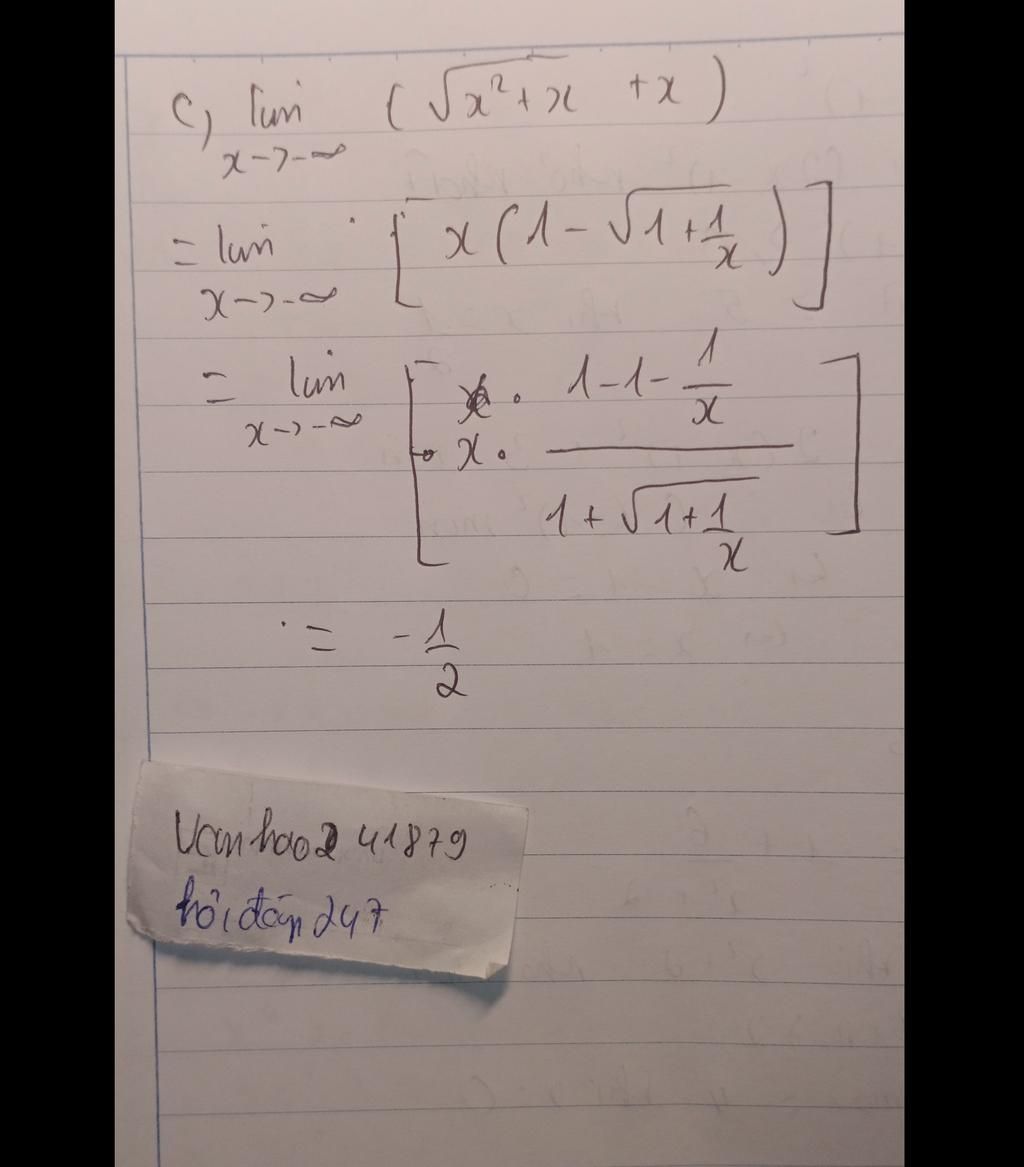 c, lim (√x²+x +x)
x->-∞
= lim [x(1-√1+1/x)]
x->-∞
= lim [x · (1-1-1/x)/(1+√1+1/x)]
x->-∞
= -1/2
Vanhao241879
hỏi đáp 247